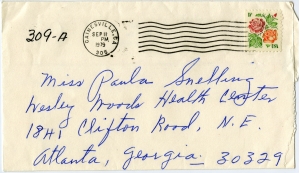 309-A
GAINESVILLE, GA
SEP 11
PM
1979
305
Miss Paula Snelling
Wesley Woods Health Center
1841 Clifton Road, N.E.
Atlanta, Georgia 30329